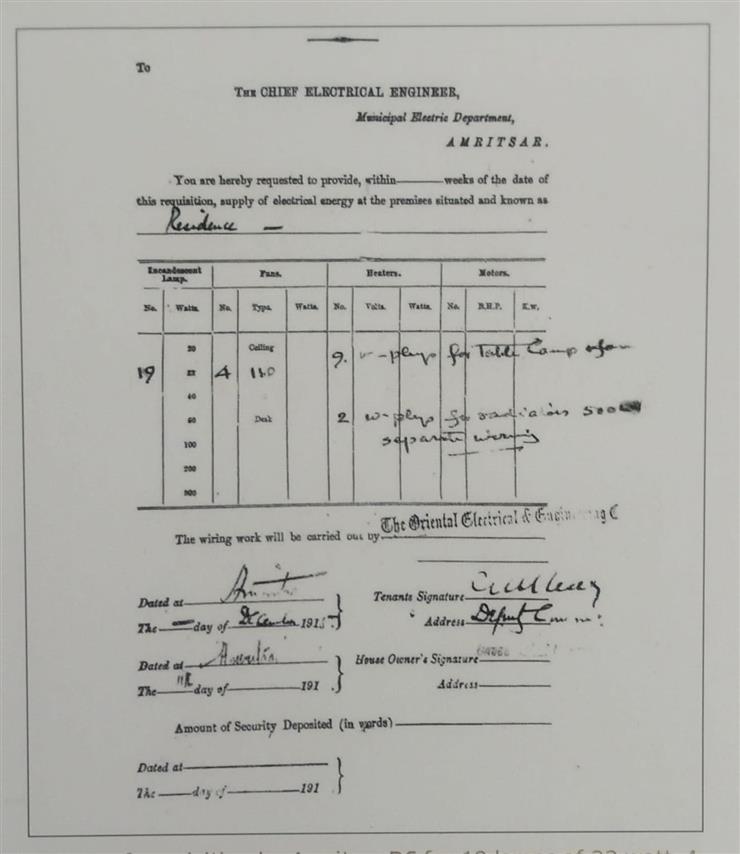 To
THE CHIEF ELECTRICAL ENGINEER,
Municipal Electric Department,
AMRITSAR.
You are hereby requested to provide, within weeks of the date of
this requisition, supply of electrical energy at the premises situated and known as
Residence —
Incandescent Lamp. Fans. Heaters. Motors.
No. Watts. No. Type. Watts. No. Volts. Watts. No. B.H.P. K.W.
20 Ceiling 9. w-plugs for Table Lamp & fan
19 22 4 110
40
60 Desk 2 w-plugs for radiators 500
100 separate wiring
200
300
The wiring work will be carried out by The Oriental Electrical & Engineering C
Dated at Tenants Signature
The day of December 1915 Address Deputy
Dated at House Owner's Signature
The day of 191 Address
Amount of Security Deposited (in words)
Dated at
The day of 191